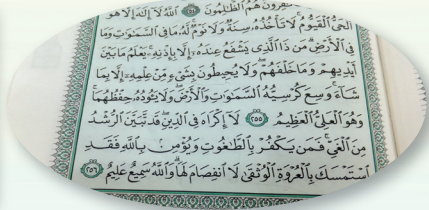 هُمُ ٱلظَّٰلِمُونَ ٢٥٤ ٱللَّهُ لَآ إِلَٰهَ إِلَّا هُوَ
ٱلْحَىُّ ٱلْقَيُّومُ لَا تَأْخُذُهُۥ سِنَةٌ وَلَا نَوْمٌ لَّهُۥ مَا فِى ٱلسَّمَٰوَٰتِ وَمَا
فِى ٱلْأَرْضِ مَن ذَا ٱلَّذِى يَشْفَعُ عِندَهُۥٓ إِلَّا بِإِذْنِهِۦ يَعْلَمُ مَا بَيْنَ
أَيْدِيهِمْ وَمَا خَلْفَهُمْ وَلَا يُحِيطُونَ بِشَىْءٍ مِّنْ عِلْمِهِۦٓ إِلَّا بِمَا
شَآءَ وَسِعَ كُرْسِيُّهُ ٱلسَّمَٰوَٰتِ وَٱلْأَرْضَ وَلَا يَـُٔودُهُۥ حِفْظُهُمَا
وَهُوَ ٱلْعَلِىُّ ٱلْعَظِيمُ ٢٥٥ لَآ إِكْرَاهَ فِى ٱلدِّينِ قَد تَّبَيَّنَ ٱلرُّشْدُ
مِنَ ٱلْغَىِّ فَمَن يَكْفُرْ بِٱلطَّٰغُوتِ وَيُؤْمِنۢ بِٱللَّهِ فَقَدِ
ٱسْتَمْسَكَ بِٱلْعُرْوَةِ ٱلْوُثْقَىٰ لَا ٱنفِصَامَ لَهَا وَٱللَّهُ سَمِيعٌ عَلِيمٌ ٢٥٦